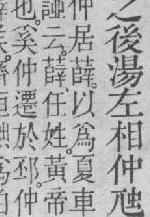 之後湯左相仲虺
仲居薛。以為夏車
云。薛。任姓。黃帝
也。奚仲遷於邳。仲